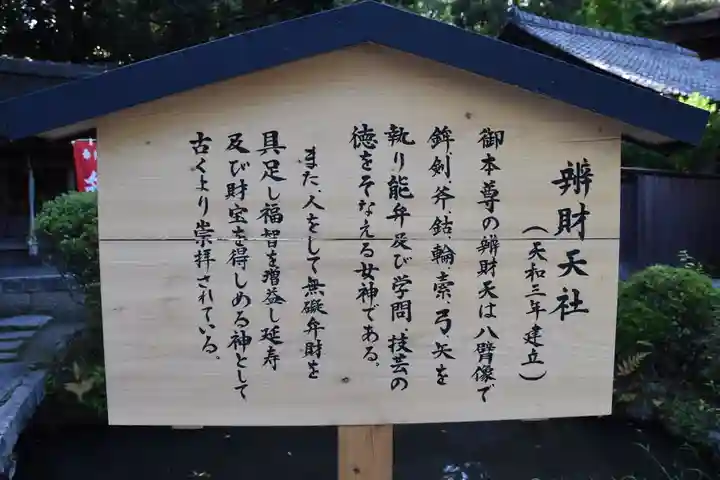 辨財天社
(天和三年建立)
御本尊の辨財天は八臂像で
鉾、剣、斧、鈷、輪、索、弓、矢を
執り能弁及び学問、技芸の
徳をそなえる女神である。
また、人をして無礙弁財を
具足し福智を増益し延寿
及び財宝を得しめる神として
古くより崇拝されている。